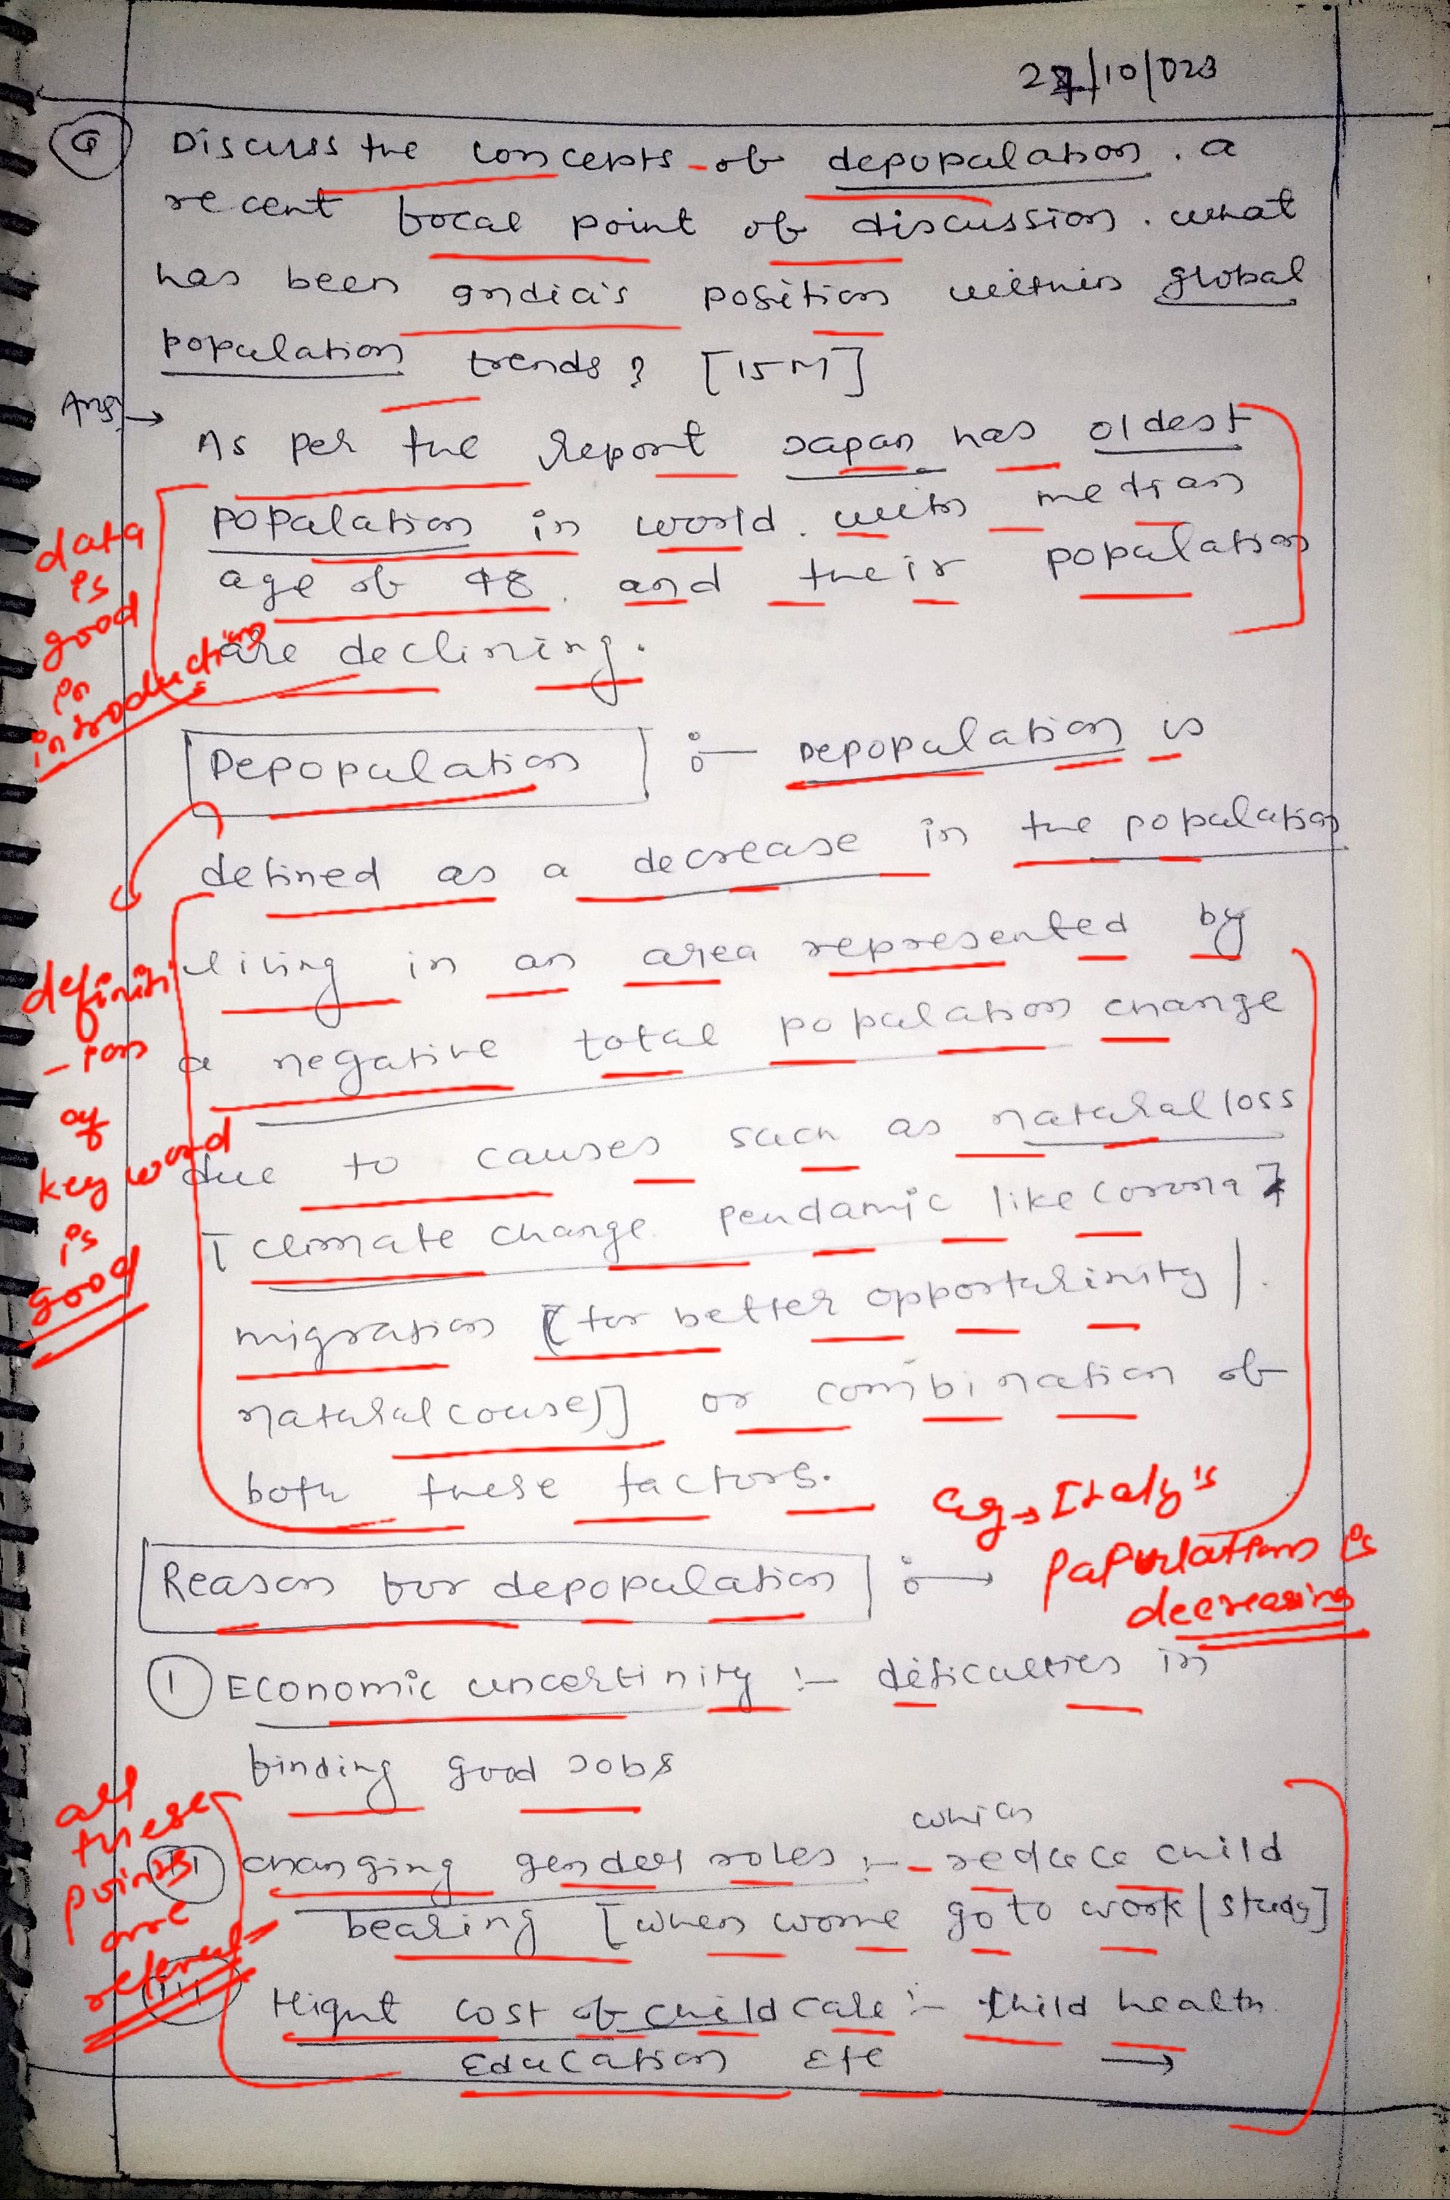 27/10/023
Q Discuss the concepts of depopulation. a
recent focal point of discussion. what
has been India's position within global
population trends? [15M]
Ans→
As per the report Japan has oldest
population in world. with median
age of 48. and their population
are declining.
data
is
good
in
introduction
Depopulation :- Depopulation is
defined as a decrease in the population
living in an area represented by
a negative total population change
due to causes such as natural loss
[climate change pendamic like corona]
migration [for better opporturinity /
natural couse)] or combination of
both these factors.
definiti
-ion
of
key word
is
good
eg→ Italy's
Papulations is
decreasing
Reason for depopulation :→
① Economic uncertinity :- deficulties in
finding good Jobs
which
II changing gender roles :- reduce child
bearing [when wome go to work / study]
III Hight cost of child care :- Child health
Education Etc →
all
these
points
are
relevent